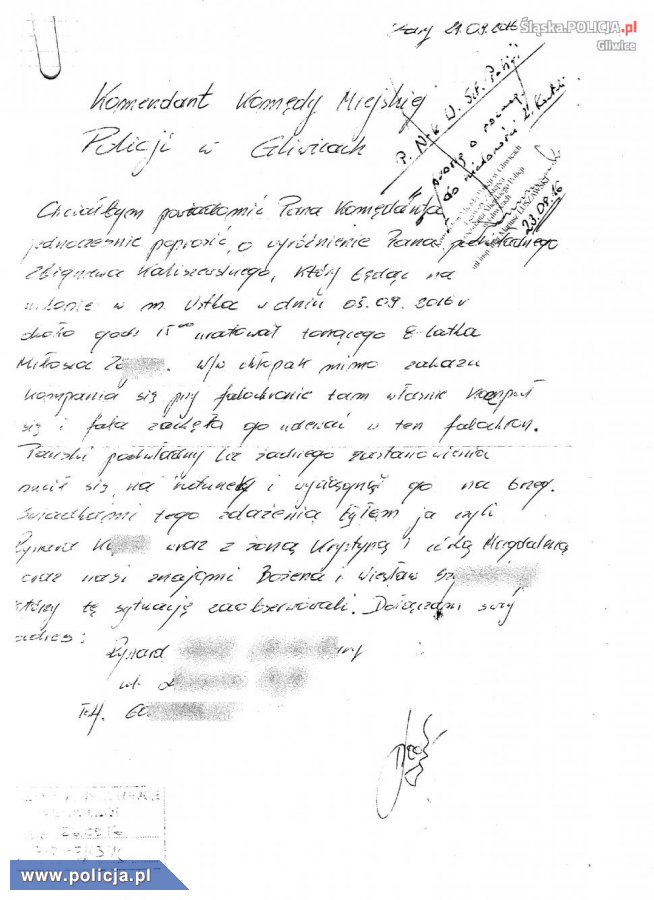 Żary 21.09.2016
Śląska.POLICJA.pl
Gliwice
Komendant Komędy Miejskiej
Policji w Gliwicach
P. Nacz. W. Szt. Policji
proszę o rozmowę
23.09.16
Chciałbym powiadomić Pana Komędanta
jednocześnie poprosić, o wyróżnienie Pana podwładnego
Zbigniewa Kaliszewskiego, który będąc na
urlopie w m. Ustka w dniu 05.09.2016 r
około godz 15⁰⁰ uratował tonącego 8-latka
Miłosza Zo. W/w chłopak mimo zakazu
kompania się przy falochronie tam właśnie kąpał
się i fala zaczęła go uderzać w ten falochron.
Pański podwładny bez żadnego zastanowienia
rzucił się na ratunek i wyciągnął go na brzeg.
Świadkami tego zdażenia byłem ja czyli
Ryszard K oraz z żoną Krystyną i córką Magdaleną
oraz nasi znajomi Bożena i Wiesław Sz
którzy tę sytuację zaobserwowali. Dołączam swój
adres:
Ryszard
ul.
Tel. 60
www.policja.pl